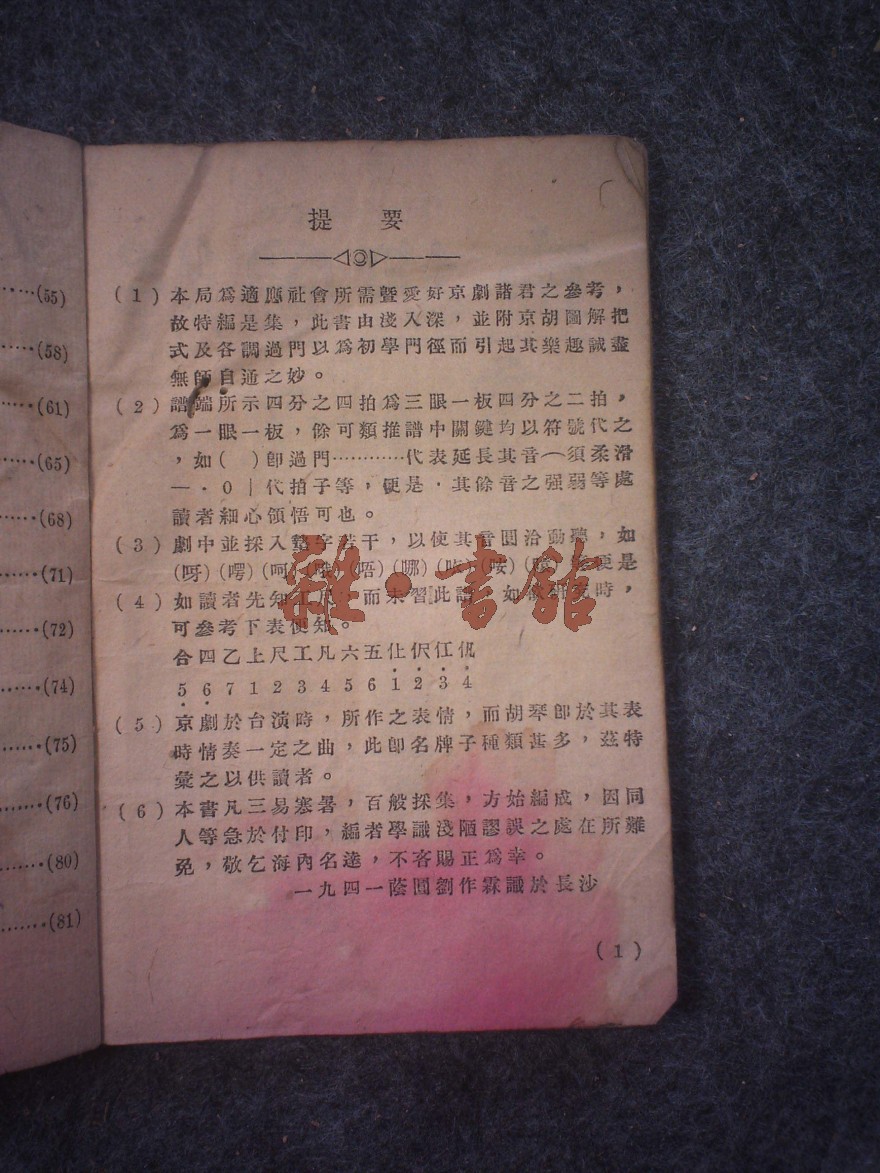 (55)
(58)
(61)
(65)
(68)
(71)
(72)
(74)
(75)
(76)
(80)
(81)
提 要
(1) 本局爲適應社會所需曁愛好京劇諸君之參考，
故特編是集，此書由淺入深，並附京胡圖解把
式及各調過門以爲初學門徑而引起其樂趣誠盡
無師自通之妙。
(2) 譜端所示四分之四拍爲三眼一板四分之二拍，
爲一眼一板，餘可類推譜中關鍵均以符號代之
，如( )卽過門…………代表延長其音⌒須柔滑
—．0｜代拍子等，便是．其餘音之强弱等處
讀者細心領悟可也。
(3) 劇中並採入墊字若干，以使其音圓洽動聽，如
(呀)(愕)(呵)(哦)(唔)(哪) 便是
(4) 如讀者先知工尺 而未習此譜 如欲 時，
可參考下表便知。
合四乙上尺工凡六五仩伬仜𠆩
5 6 7 1 2 3 4 5 6 1 2 3 4
(5) 京劇於台演時，所作之表情，而胡琴卽於其表
時情奏一定之曲，此卽名牌子種類甚多，茲特
彙之以供讀者。
(6) 本書凡三易寒暑，百般採集，方始編成，因同
人等急於付印，編者學識淺陋謬誤之處在所難
免，敬乞海內名達，不吝賜正爲幸。
一九四一蔭園劉作霖識於長沙
(1)
雜·書館